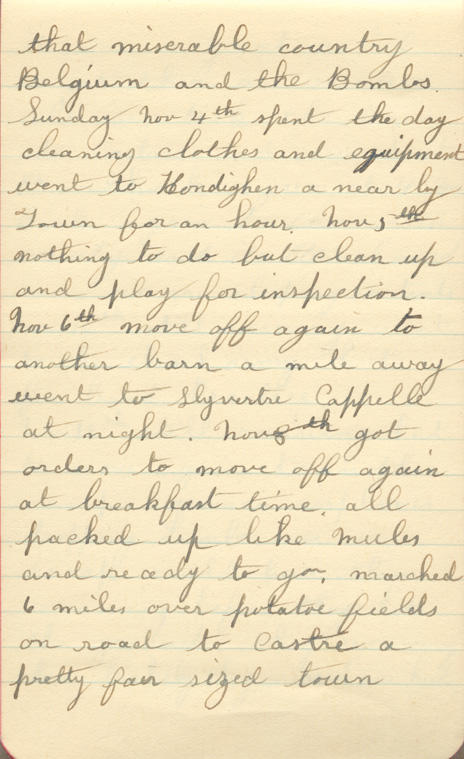 that miserable country
Belgium and the Bombs.
Sunday Nov 4th spent the day
cleaning clothes and equipment
went to Hondighen a near by
Town for an hour. Nov 5th
nothing to do but clean up
and play for inspection.
Nov 6th move off again to
another barn a mile away
went to Slyvertre Cappelle
at night. Nov 8th got
orders to move off again
at breakfast time. all
packed up like mules
and ready to go, marched
6 miles over potatoe fields
on road to Castre a
pretty fair sized town